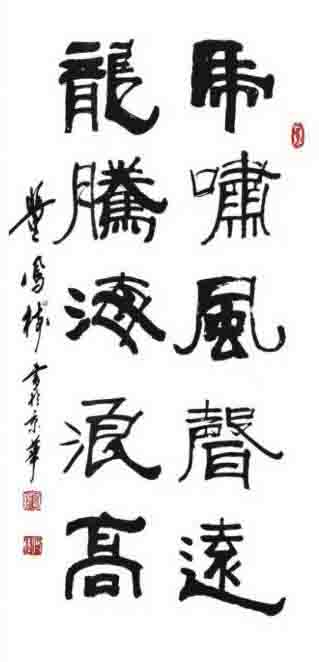 虎嘯風聲遠
龍騰海浪高
鳳樓書於京華